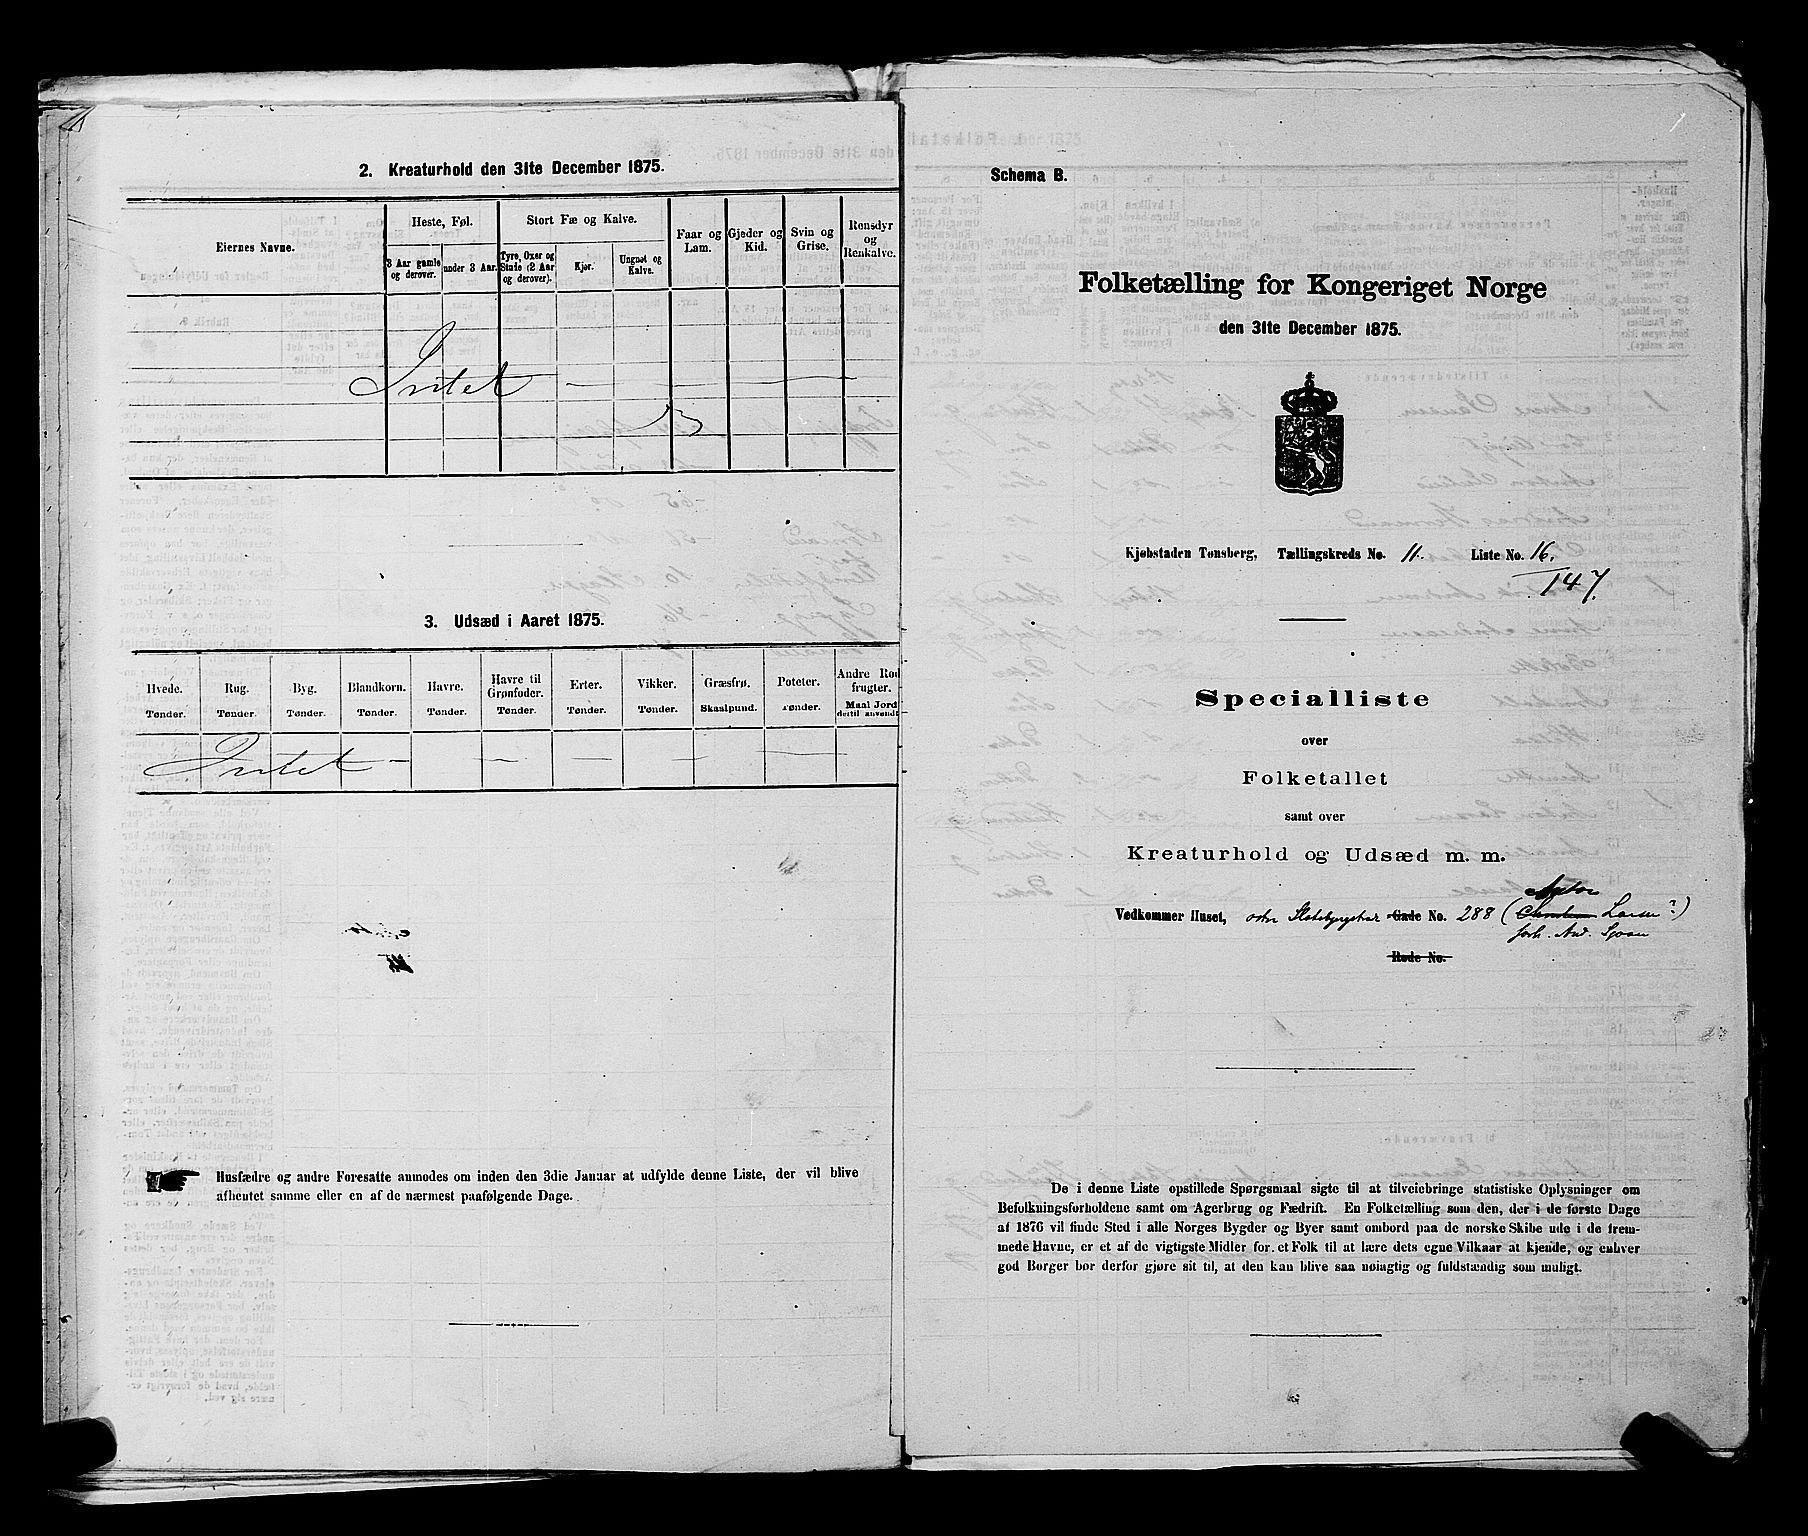 2. Kreaturhold den 31te December 1875.
Eiernes Navne.
Heste, Føl.
Stort Fæ og Kalve.
Faar og Lam.
Gjeder og Kid.
Svin og Grise.
Rensdyr og Renkalve.
3 Aar gamle og derover.
under 3 Aar.
Tyre, Oxer og Stude (2 Aar og derover).
Kjør.
Ungnøt og Kalve.
Intet — — — —
3. Udsæd i Aaret 1875.
Hvede. Rug. Byg. Blandkorn. Havre. Havre til Grønfoder. Erter. Vikker. Græsfrø. Poteter. Andre Rodfrugter.
Tønder. Tønder. Tønder. Tønder. Tønder. Tønder. Tønder. Tønder. Skaalpund. Tønder. Maal Jord dertil anvendt
Intet — — — — — —
Husfædre og andre Foresatte anmodes om inden den 3die Januar at udfylde denne Liste, der vil blive
afhentet samme eller en af de nærmest paafølgende Dage.
Schema B.
Folketælling for Kongeriget Norge
den 31te December 1875.
Kjøbstaden Tønsberg, Tællingskreds No. 11. Liste No. 16.
147.
Specialliste
over
Folketallet
samt over
Kreaturhold og Udsæd m. m.
Anton
Vedkommer Huset, Gade No. 288 ( Larsen ?)
forh. And.
Rode No.
De i denne Liste opstillede Spørgsmaal sigte til at tilveiebringe statistiske Oplysninger om
Befolkningsforholdene samt om Agerbrug og Fædrift. En Folketælling som den, der i de første Dage
af 1876 vil finde Sted i alle Norges Bygder og Byer samt ombord paa de norske Skibe ude i de frem-
mede Havne, er et af de vigtigste Midler for et Folk til at lære dets egne Vilkaar at kjende, og enhver
god Borger bør derfor gjøre sit til, at den kan blive saa nøiagtig og fuldstændig som muligt.